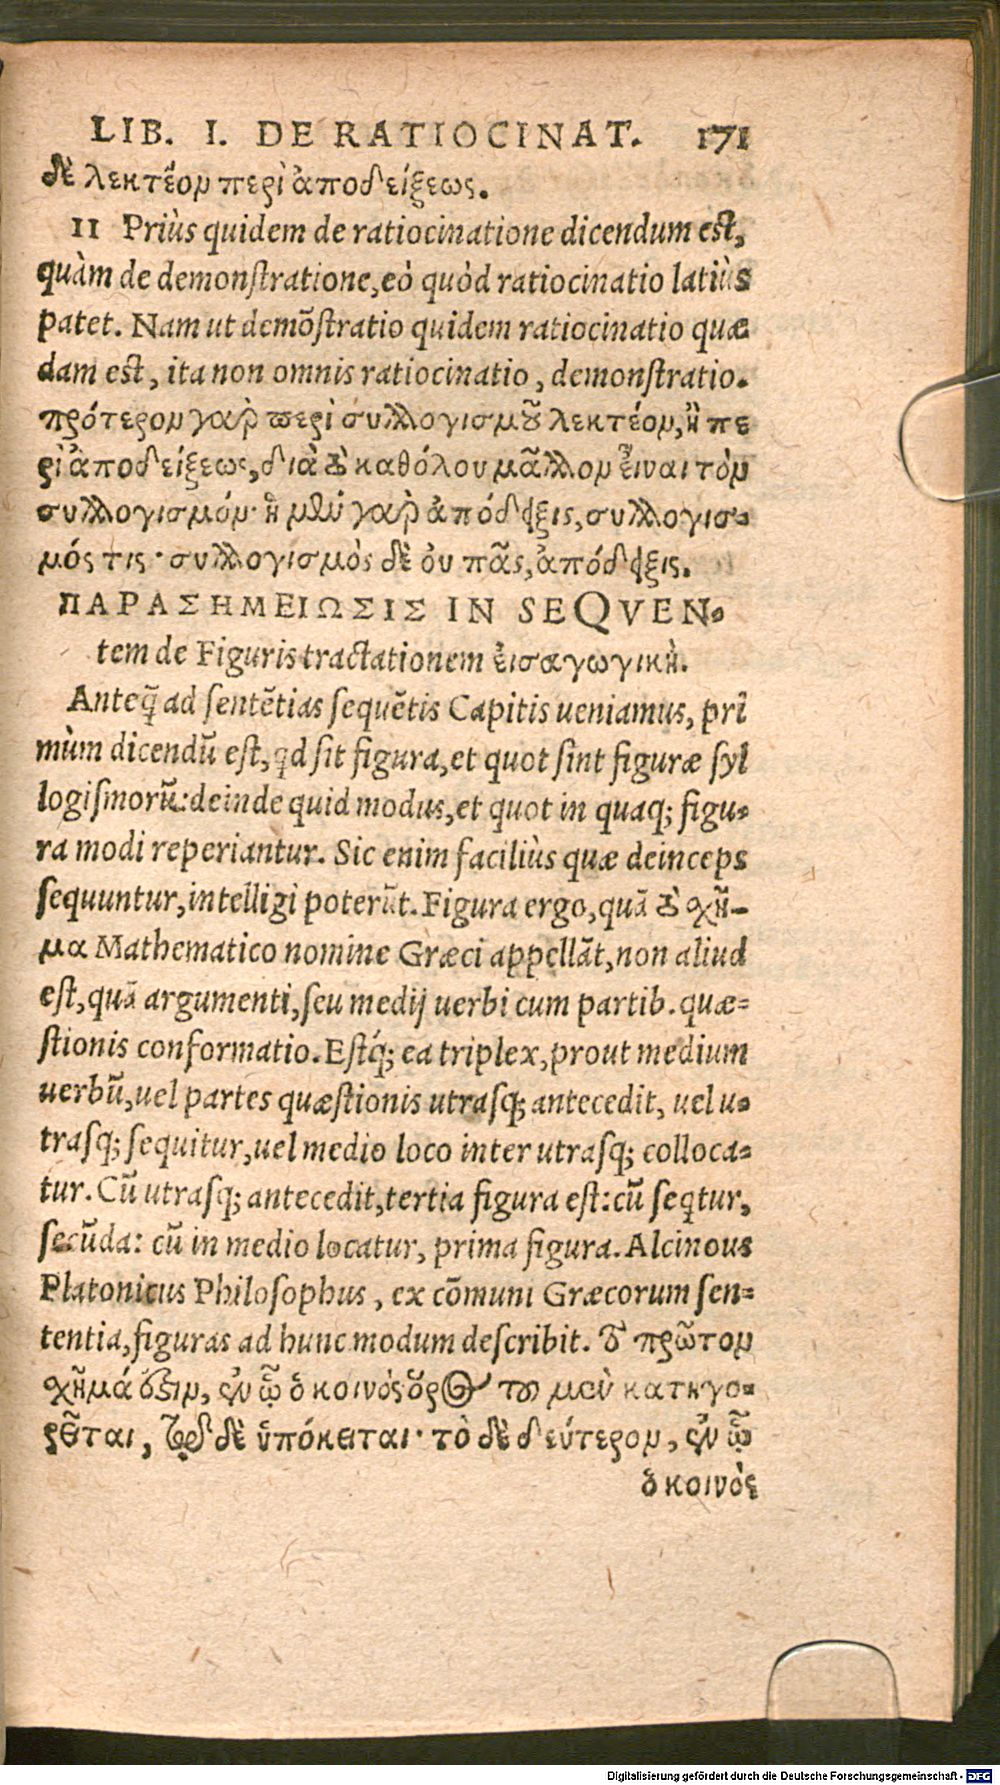 LIB. I. DE RATIOCINAT. 171
δὲ λεκτέον περὶ ἀποδείξεως.
11 Priùs quidem de ratiocinatione dicendum est,
quàm de demonſtratione, eò quòd ratiocinatio latiùs
patet. Nam ut demõſtratio quidem ratiocinatio quæ
dam est, ita non omnis ratiocinatio, demonſtratio.
πρότερον γὰρ περὶ συλλογισμοῦ λεκτέον, ἢ πε
ρὶ ἀποδείξεως, διὰ τὸ καθόλου μᾶλλον εἶναι τὸν
συλλογισμόν· ἡ μὲν γὰρ ἀπόδειξις, συλλογισ-
μός τις· συλλογισμὸς δὲ οὐ πᾶς, ἀπόδειξις.
ΠΑΡΑΣΗΜΕΙΩΣΙΣ IN SEQVEN-
tem de Figuris tractationem εἰσαγωγικὴ.
Anteq̃ ad ſentẽtias ſequẽtis Capitis ueniamus, pri
mùm dicendũ eſt, qd ſit figura, et quot ſint figuræ ſyl
logiſmorũ: deinde quid modus, et quot in quaq; figu-
ra modi reperiantur. Sic enim faciliùs quæ deinceps
ſequuntur, intelligi poterũt. Figura ergo, quã τὸ χῆ-
μα Mathematico nomine Græci appellãt, non aliud
eſt, quã argumenti, ſeu medij uerbi cum partib. quæ-
ſtionis conformatio. Eſtq́; ea triplex, prout medium
uerbũ, uel partes quæſtionis utraſq; antecedit, uel u-
traſq; ſequitur, uel medio loco inter utraſq; colloca-
tur. Cũ utraſq; antecedit, tertia figura eſt: cũ ſeqtur,
ſecũda: cũ in medio locatur, prima figura. Alcinous
Platonicus Philoſophus, ex cõmuni Græcorum ſen-
tentia, figuras ad hunc modum deſcribit. τὸ πρῶτον
χῆμά ὅστιν, ἐν ᾧ ὁ κοινὸς ὅρος τοῦ μὲν κατηγο-
ρεῖται, τοῦ δὲ ὑπόκειται· τὸ δὲ δεύτερον, ἐν ᾧ
ὁ κοινὸς